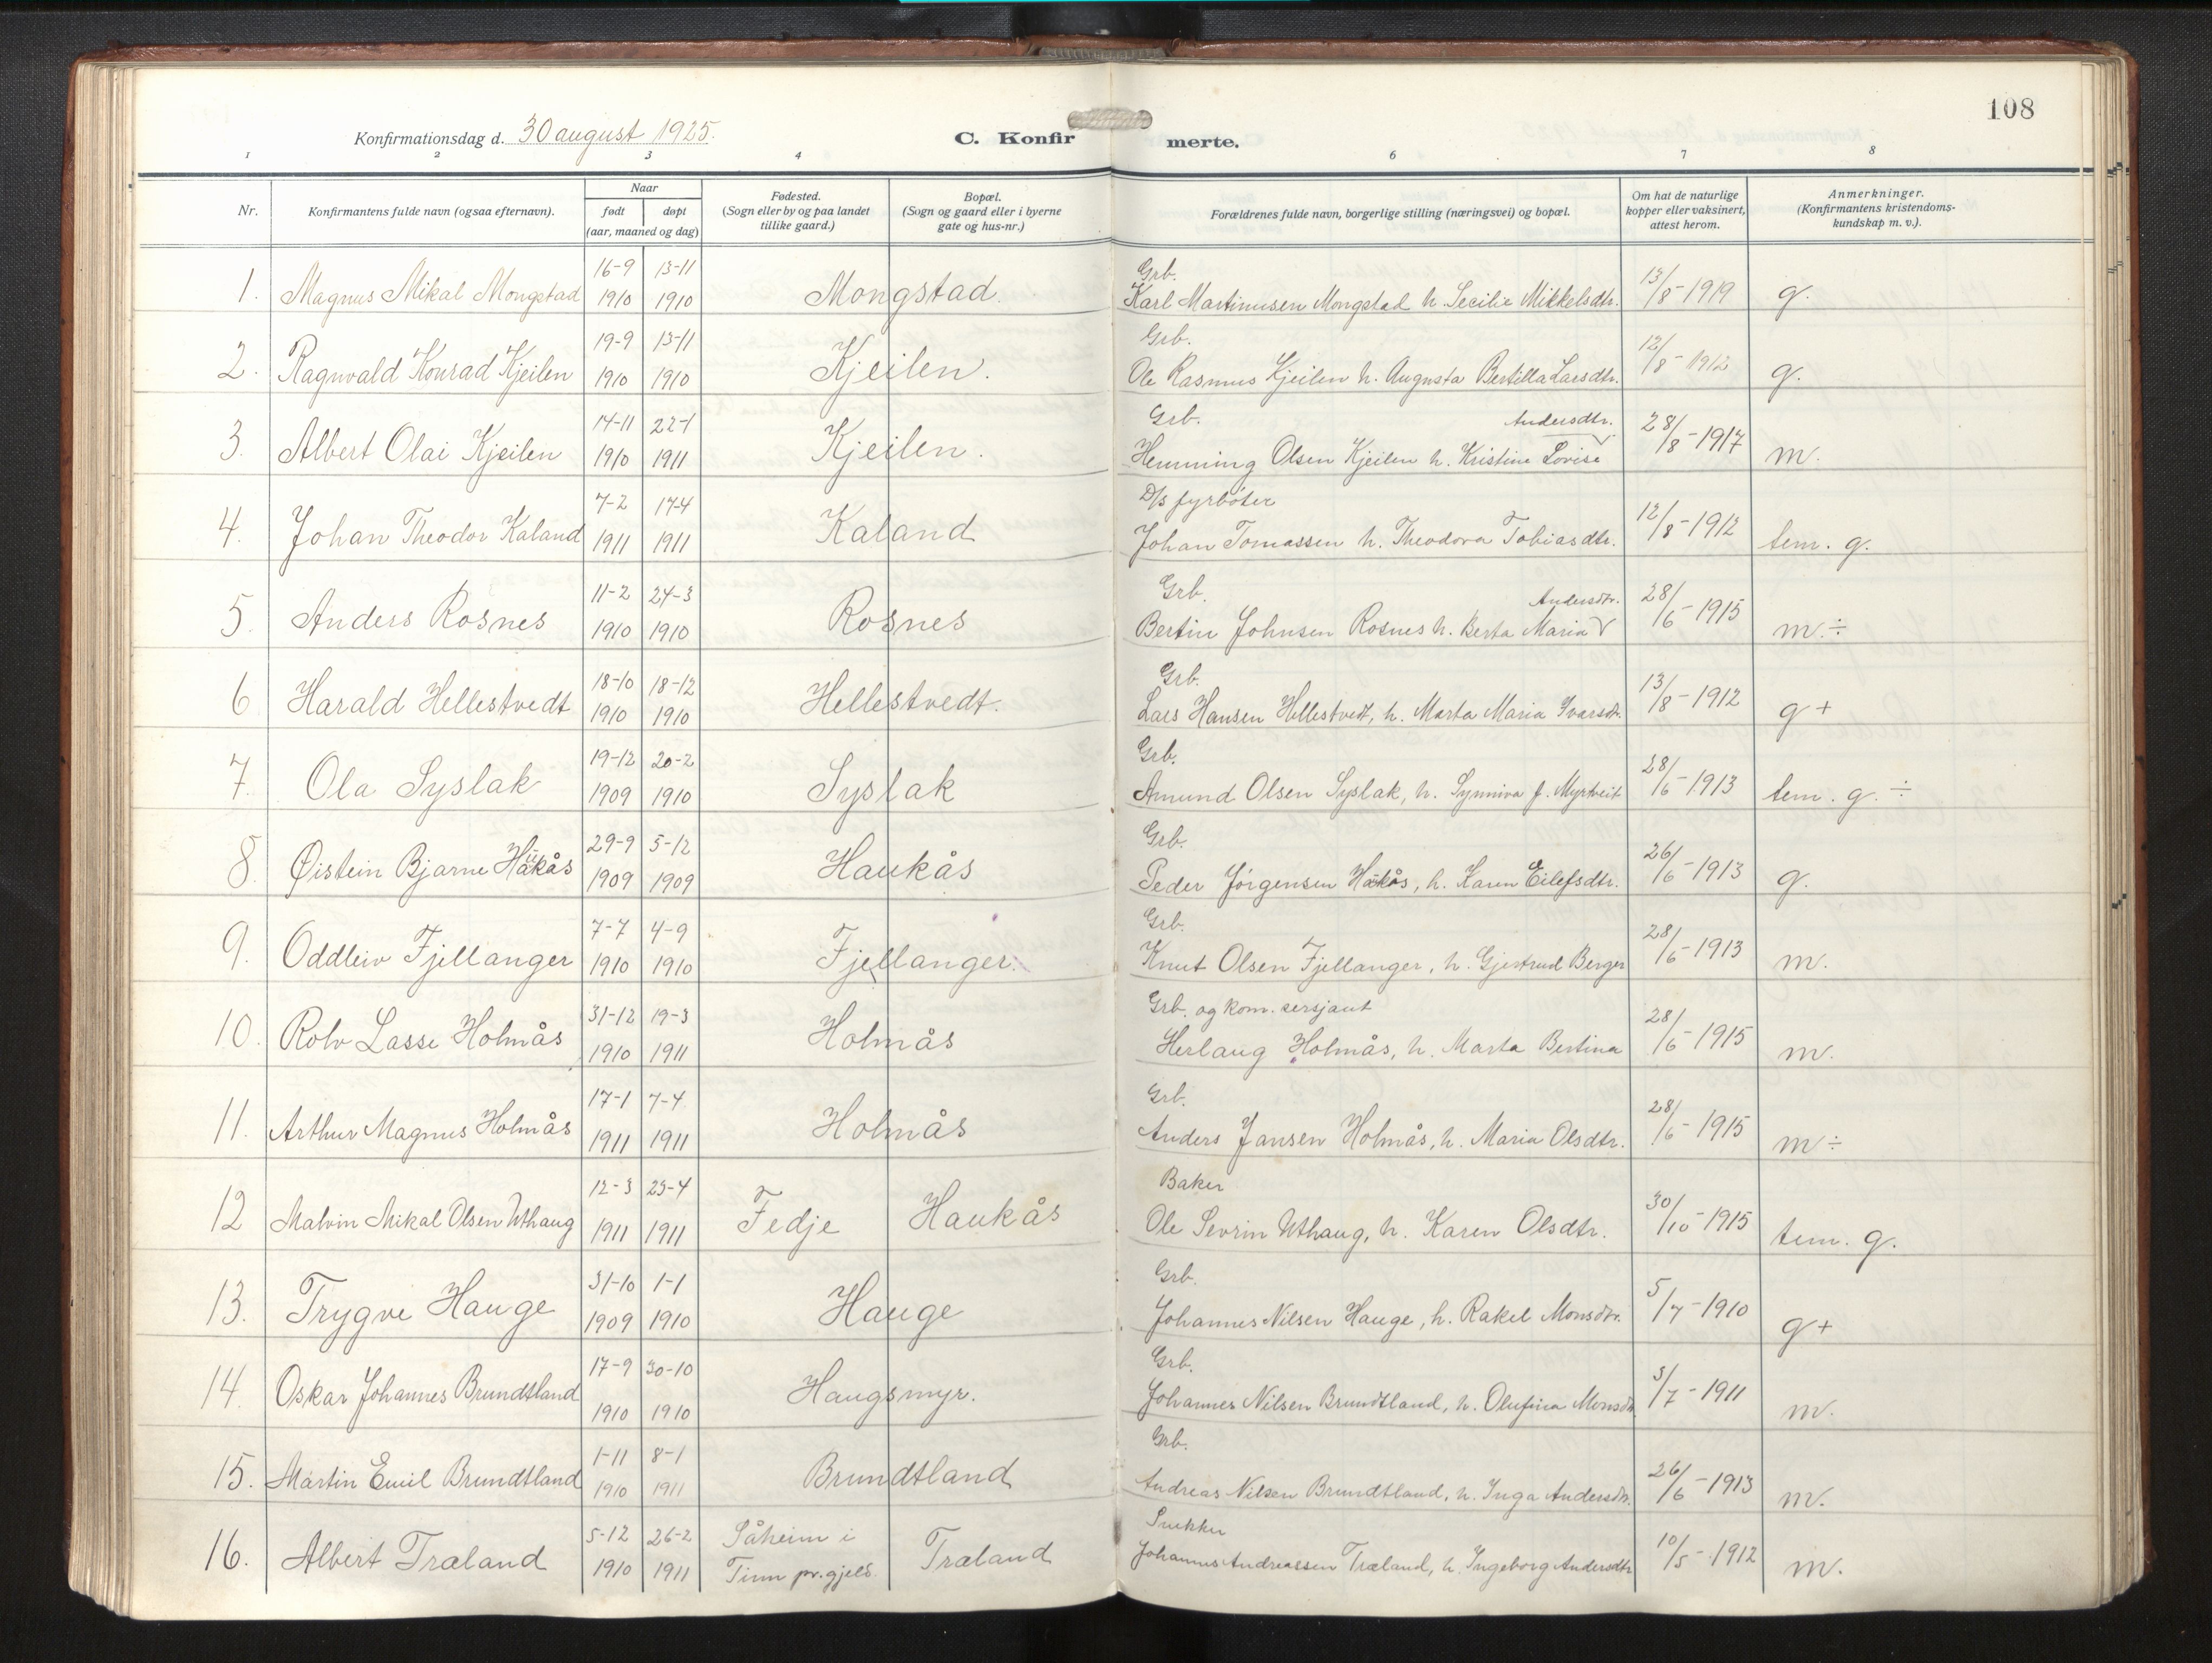 108
Konfirmationsdag d. 30 august 1925.
C. Konfir merte.
1 2 3 4 6 7 8
Nr.
Konfirmantens fulde navn (ogsaa efternavn).
Naar
født døpt
(aar, maaned og dag)
Fødested.
(Sogn eller by og paa landet
tillike gaard.)
Bopæl.
(Sogn og gaard eller i byerne
gate og hus-nr.)
Forældrenes fulde navn, borgerlige stilling (næringsvei) og bopæl.
Om hat de naturlige
kopper eller vaksinert,
attest herom.
Anmerkninger.
(Konfirmantens kristendoms-
kundskap m. v.).
16-9 13-11 Grb.
1. Magnus Mikal Mongstad 1910 1910 Mongstad. Karl Martinusen Mongstad h. Secilie Mikkelsdtr. 13/8-1919 g.
19-9 13-11 Grb.
2. Ragnvald Konrad Kjeilen 1910 1910 Kjeilen. Ole Rasmus Kjeilen h. Augusta Bertilla Larsdtr. 12/8-1912 g.
14-11 22-1 Grb. Andersdtr.
3. Albert Olai Kjeilen 1910 1911 Kjeilen. Hemming Olsen Kjeilen h. Kristine Lovise 28/8-1917 m.
7-2 17-4 D/s fyrbøter
4. Johan Theodor Kaland 1911 1911 Kaland Johan Tomassen h. Theodora Tobiasdtr. 12/8-1912 tem. g.
11-2 24-3 Grb. Andersdtr.
5. Anders Rosnes 1910 1910 Rosnes Bertin Johnsen Rosnes h. Berta Maria V 28/6-1915 m. ÷
18-10 18-12 Grb.
6 Harald Hellestvedt 1910 1910 Hellestvedt. Lars Hansen Hellestvedt, h. Marta Maria Ivarsdt. 13/8-1912 g +
19-12 20-2 Grb.
7. Ola Syslak 1909 1910 Syslak Amund Olsen Syslak, h. Synniva f. Myrtveit 28/6-1913 tem. g. ÷
29-9 5-12 Grb.
8. Øistein Bjarne Haukås 1909 1909 Haukås Peder Jørgensen Haukås, h. Karen Eilefsdtr. 26/6-1913 g.
7-7 4-9 Grb.
9. Oddleiv Fjellanger 1910 1910 Fjellanger. Knut Olsen Fjellanger, h. Gjertrud Berger 28/6-1913 m.
31-12 19-3 Grb. og kom. sersjant
10. Rolv Lasse Holmås 1910 1911 Holmås Herlaug Holmås, h. Marta Bertina 28/6-1915 m.
17-1 7-4 Grb.
11. Arthur Magnus Holmås 1911 1911 Holmås Anders Jansen Holmås, h. Maria Olsdtr. 28/6-1915 m ÷
12-3 23-4 Baker
12 Malvin Mikal Olsen Uthaug 1911 1911 Fedje Haukås Ole Sevrin Uthaug, h. Karen Olsdtr. 30/10-1915 tem. g.
31-10 1-1 Grb.
13. Trygve Hauge 1909 1910 Hauge Johannes Nilsen Hauge, h. Rakel Monsdtr. 5/7-1910 g +
17-9 30-10 Grb.
14. Oskar Johannes Brundtland 1910 1910 Haugsmyr. Johannes Nilsen Brundtland, h. Olufina Monsdtr. 3/7-1911 m.
1-11 8-1 Grb.
15. Martin Emil Brundtland 1910 1911 Brundtland Andreas Nilsen Brundtland, h. Inga Andersdtr. 26/6-1913 m.
5-12 26-2 Såheim i Snekker
16. Albert Træland 1910 1911 Tinn pr.gjeld. Træland Johannes Andreassen Træland, h. Ingeborg Andersdtr 10/5-1912 m.